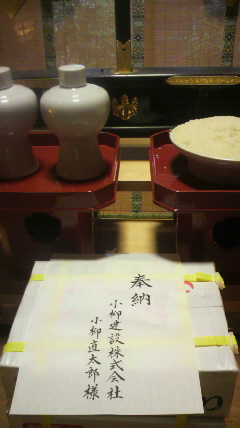 奉納
小柳建設株式会社
小柳直太郎様